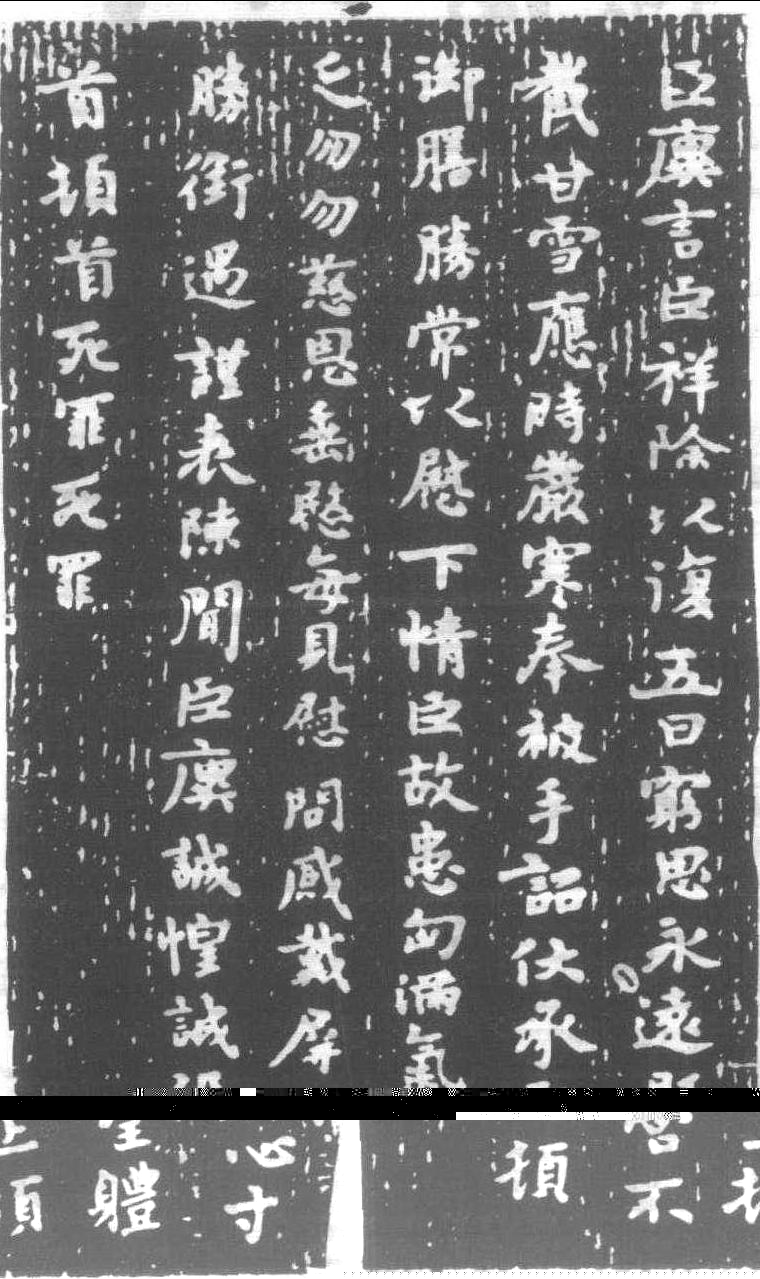 臣廙言臣祥除以復五日窮思永遠
截甘雪應時嚴寒奉被手詔伏承
御膳勝常以慰下情臣故患匈滿氣
乏勿勿慈恩垂愍每見慰問感戴屏
勝銜遇謹表陳聞臣廙誠惶誠
首頓首死罪死罪
心寸
聖體
上頓
營不
頓